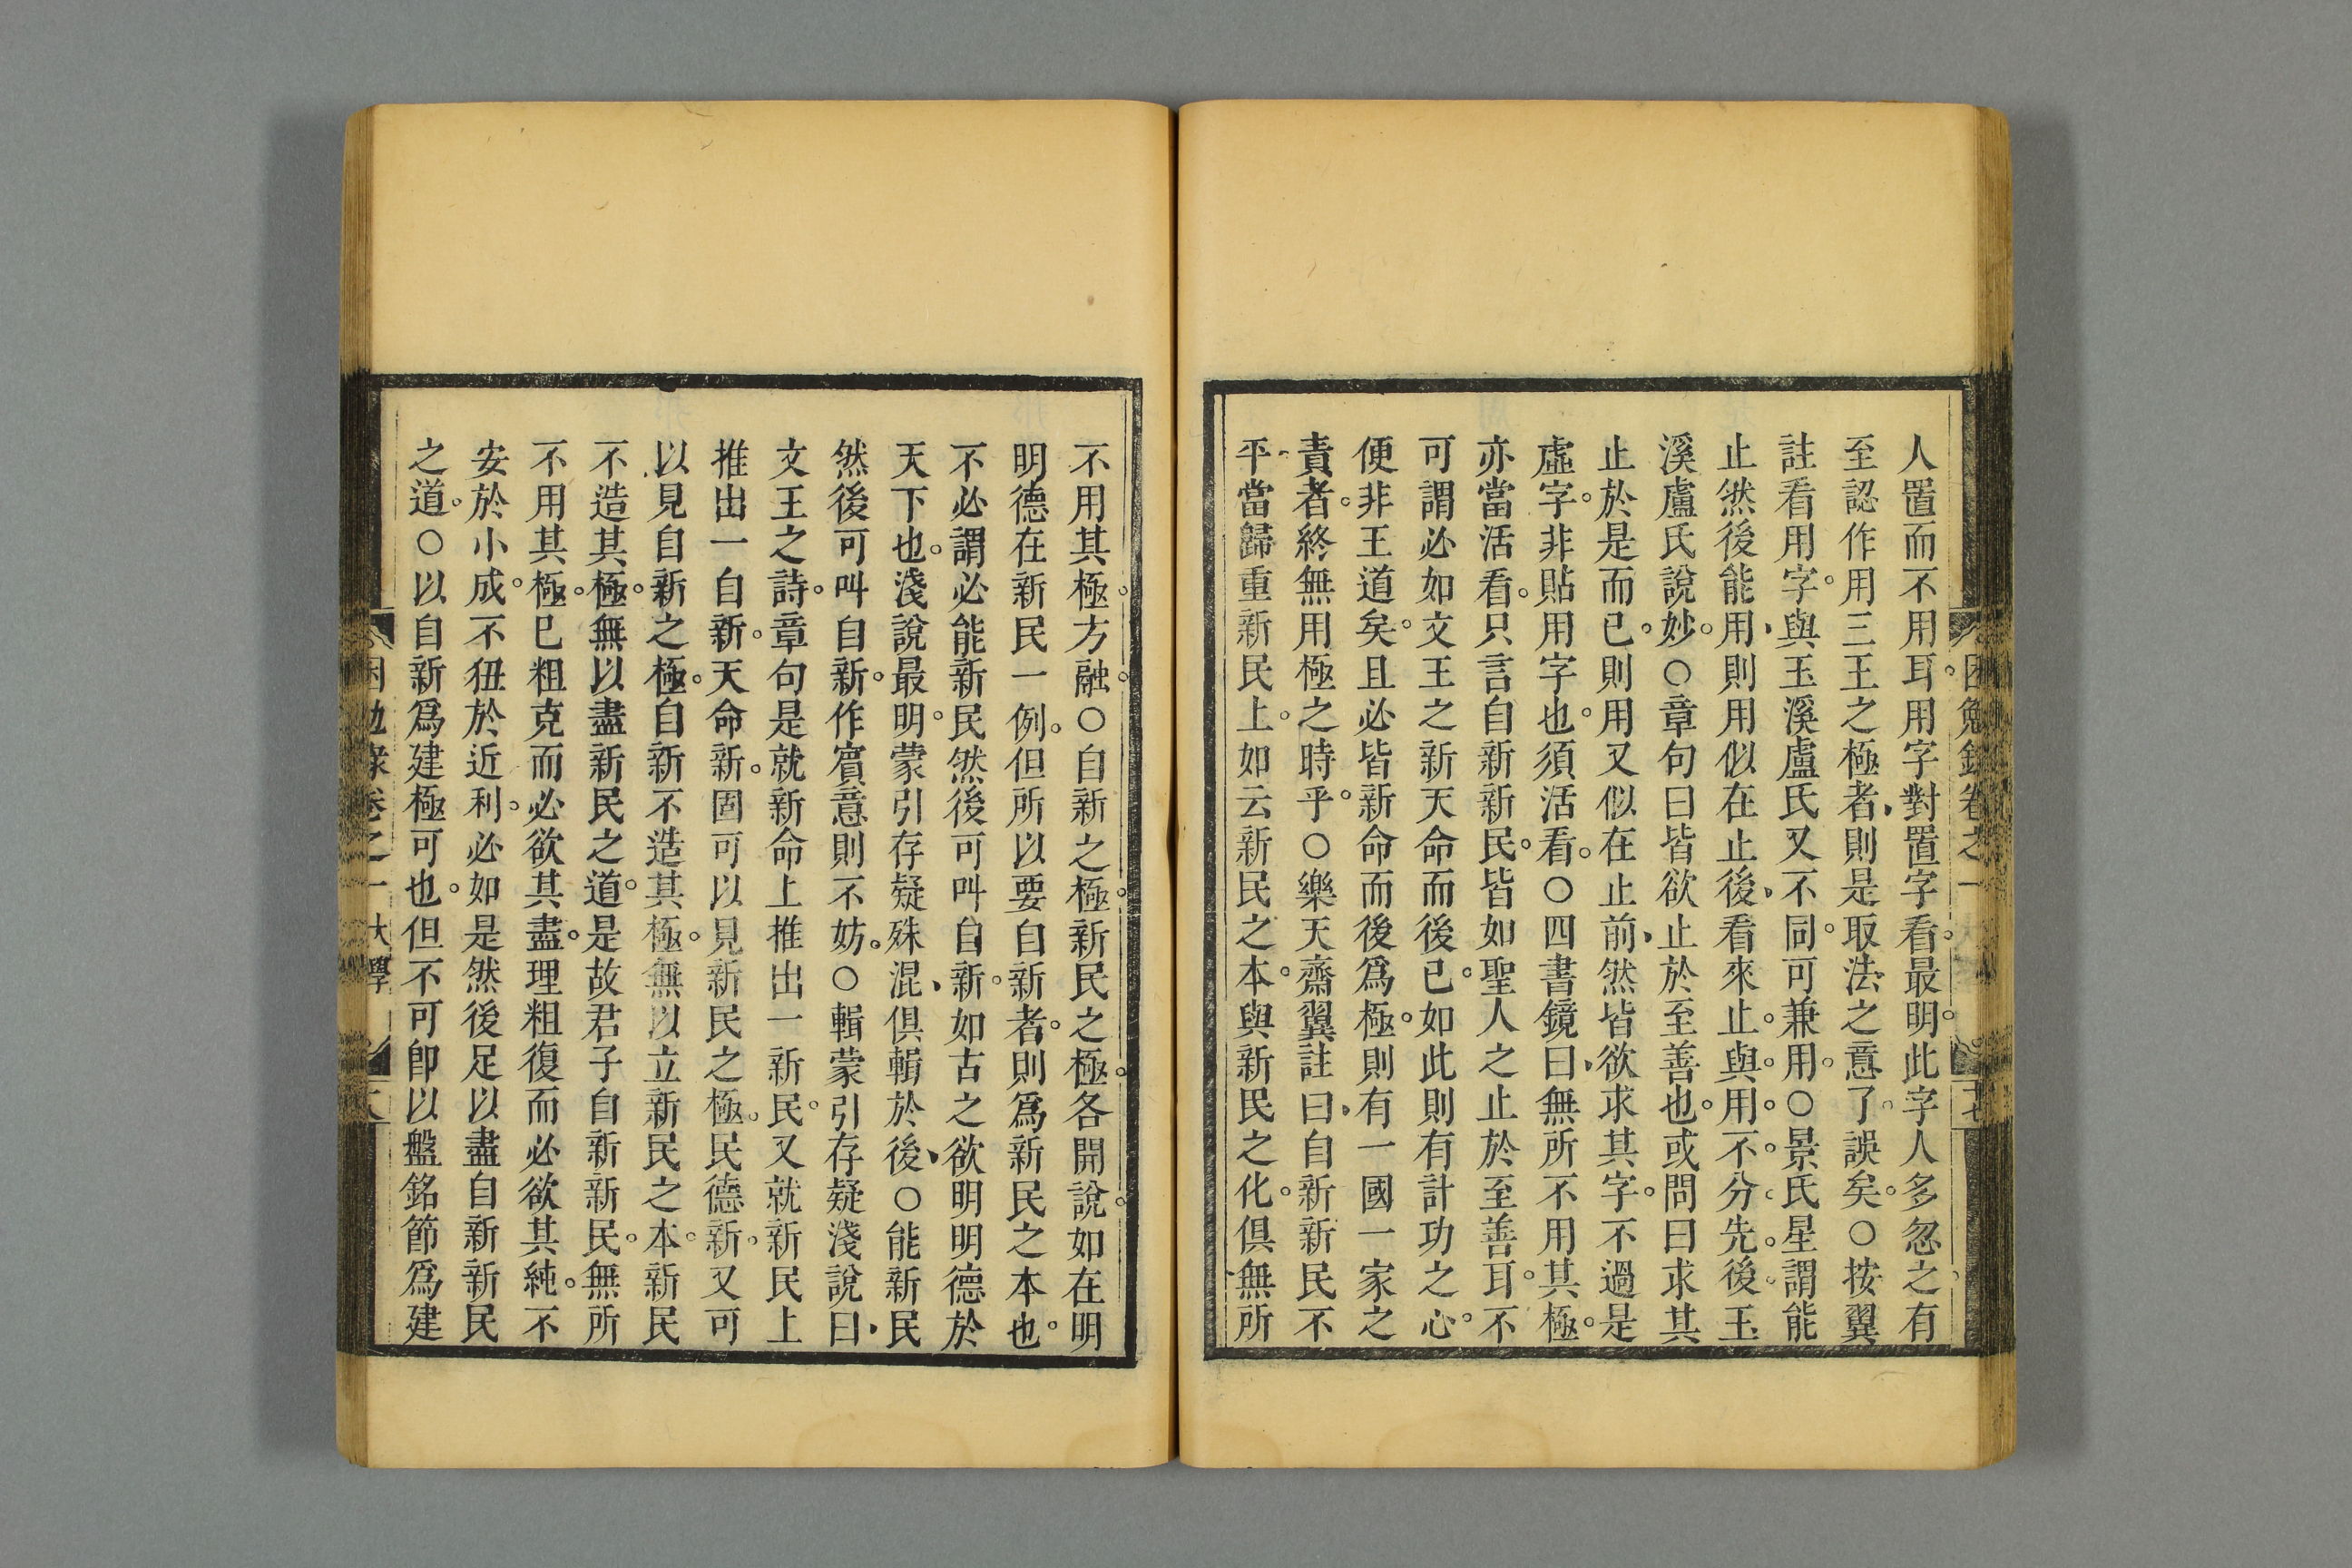 人置而不用耳。用字對置字看。最明。此字人多忽之。有
至認作用三王之極者、則是取法之意了。誤矣。○按翼
註看用字。與玉溪盧氏又不同。可兼用。○景氏星謂能
止然後能用、則用似在止後、看來止。與。用。不。分。先。後。玉
溪盧氏說妙。○章句曰皆欲止於至善也。或問曰求其
止於是而已。則用又似在止前、然皆欲求其字。不過是
虛字。非貼用字也。須活看。○四書鏡曰、無所不用其極。
亦當活看。只言自新新民。皆如聖人之止於至善耳。不
可謂必如文王之新天命而後已。如此則有計功之心。
便非王道矣。且必皆新命而後爲極。則有一國一家之
責者。終無用極之時乎。○樂天齋翼註曰、自新新民不
平、當歸重新民上。如云新民之本。與新民之化。俱無所
困勉錄卷之一
十七
不用其極。方融。○自新之極。新民之極。各開說。如在明
明德在新民一例。但所以要自新者。則爲新民之本也。
不必謂必能新民然後可叫自新。如古之欲明明德於
天下也。淺說最明。蒙引存疑殊混、俱輯於後、○能新民
然後可叫自新。作賓意則不妨。○輯蒙引存疑淺說曰、
文王之詩。章句是就新命上推出一新民。又就新民上
推出一自新。天命新。固可以見新民之極。民德新。又可
以見自新之極。自新不造其極。無以立新民之本。新民
不造其極。無以盡新民之道。是故君子自新新民。無所
不用其極。已粗克而必欲其盡。理粗復而必欲其純。不
安於小成。不狃於近利。必如是然後足以盡自新新民
之道。○以自新爲建極可也。但不可卽以盤銘節爲建
困勉錄卷之一 大學